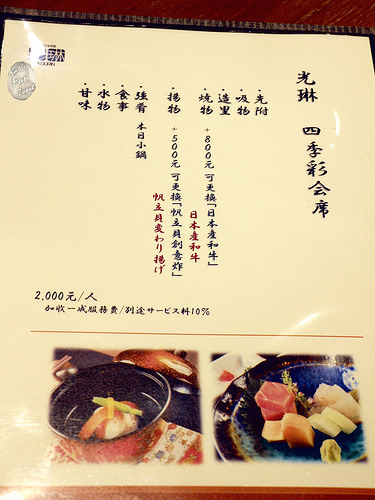 光琳
KOURIN
光琳 四季彩会席
・先附
・吸物
・造里
・焼物 +800元 可更換「日本産和牛」
日本産和牛
・揚物 +500元 可更換「帆立貝創意炸」
帆立貝変わり揚げ
・強肴 本日小鍋
・食事
・水物
・甘味
2,000元/人
加收一成服務費/別途サービス料10%